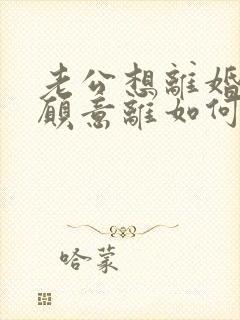 老公想離婚
願意離如何
哈蒙